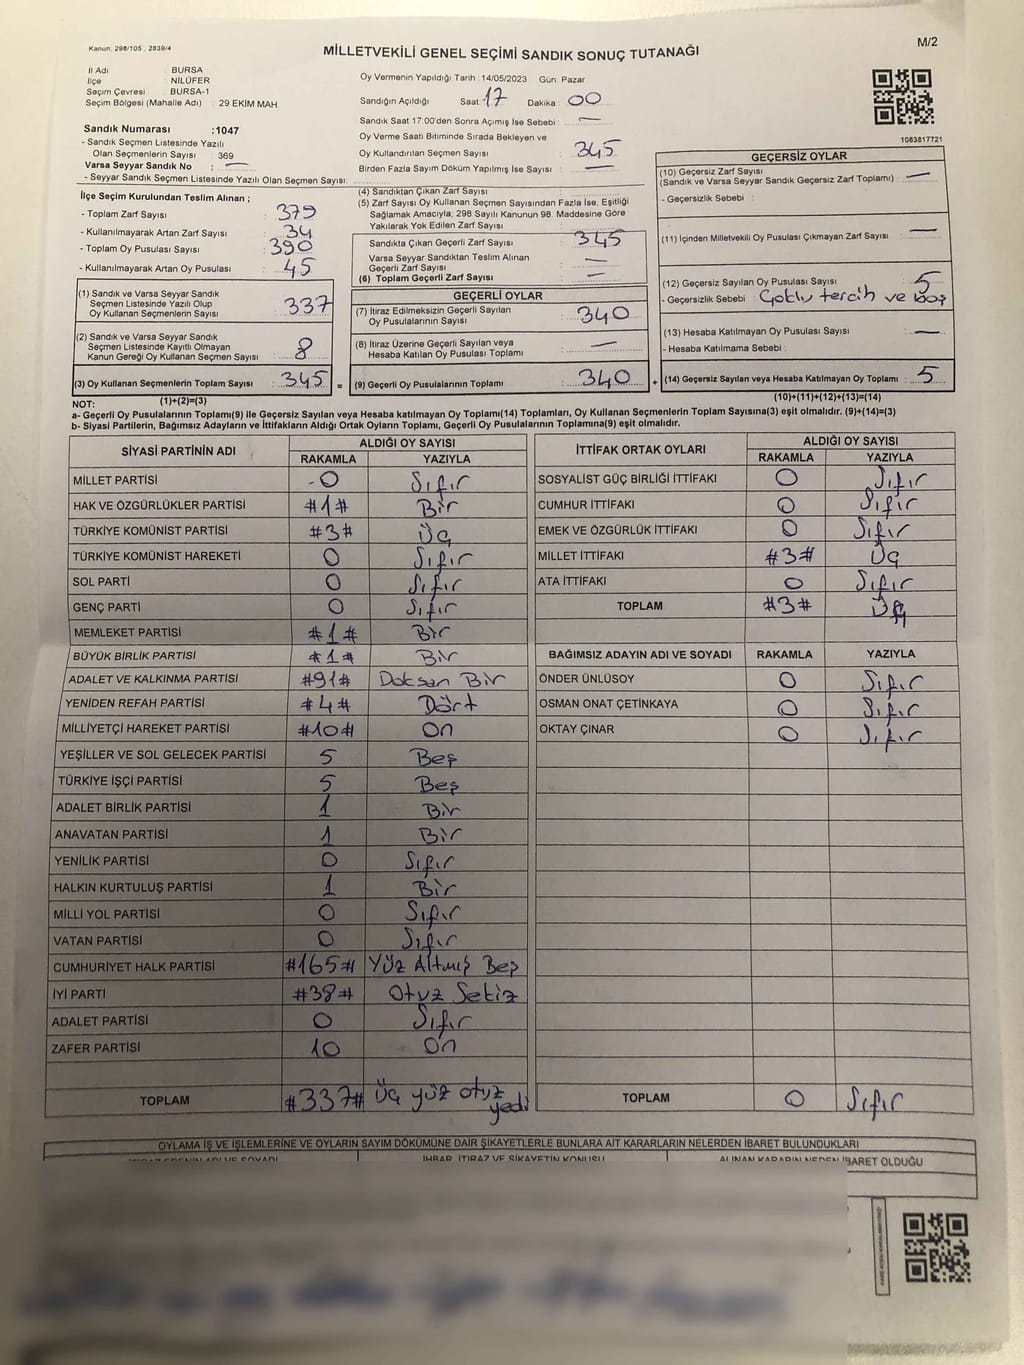 Kanun: 298/105 , 2839/4
MİLLETVEKİLİ GENEL SEÇİMİ SANDIK SONUÇ TUTANAĞI
M/2
İl Adı : BURSA
İlçe : NİLÜFER
Seçim Çevresi : BURSA-1
Seçim Bölgesi (Mahalle Adı) : 29 EKİM MAH.
Sandık Numarası :1047
- Sandık Seçmen Listesinde Yazılı
Olan Seçmenlerin Sayısı : 369
Varsa Seyyar Sandık No : —
- Seyyar Sandık Seçmen Listesinde Yazılı Olan Seçmen Sayısı:
Oy Vermenin Yapıldığı Tarih : 14/05/2023 Gün: Pazar
Sandığın Açıldığı Saat : 17 Dakika : 00
Sandık Saat 17.00'den Sonra Açımış İse Sebebi : —
Oy Verme Saati Bitiminde Sırada Bekleyen ve
Oy Kullandırılan Seçmen Sayısı : 345
Birden Fazla Sayım Döküm Yapılmış İse Sayısı : —
1083817721
İlçe Seçim Kurulundan Teslim Alınan ;
- Toplam Zarf Sayısı : 379
- Kullanılmayarak Artan Zarf Sayısı : 34
- Toplam Oy Pusulası Sayısı : 390
- Kullanılmayarak Artan Oy Pusulası : 45
(1) Sandık ve Varsa Seyyar Sandık
Seçmen Listesinde Yazılı Olup
Oy Kullanan Seçmenlerin Sayısı : 337
(2) Sandık ve Varsa Seyyar Sandık
Seçmen Listesinde Kayıtlı Olmayan
Kanun Gereği Oy Kullanan Seçmen Sayısı : 8
(3) Oy Kullanan Seçmenlerin Toplam Sayısı : 345 =
(1)+(2)=(3)
(4) Sandıktan Çıkan Zarf Sayısı :
(5) Zarf Sayısı Oy Kullanan Seçmen Sayısından Fazla İse, Eşitliği
Sağlamak Amacıyla, 298 Sayılı Kanunun 98. Maddesine Göre
Yakılarak Yok Edilen Zarf Sayısı :
Sandıkta Çıkan Geçerli Zarf Sayısı : 345
Varsa Seyyar Sandıktan Teslim Alınan
Geçerli Zarf Sayısı : —
(6) Toplam Geçerli Zarf Sayısı : —
GEÇERLİ OYLAR
(7) İtiraz Edilmeksizin Geçerli Sayılan
Oy Pusulalarının Sayısı : 340
(8) İtiraz Üzerine Geçerli Sayılan veya
Hesaba Katılan Oy Pusulası Toplamı : —
(9) Geçerli Oy Pusulalarının Toplamı : 340 +
GEÇERSİZ OYLAR
(10) Geçersiz Zarf Sayısı
(Sandık ve Varsa Seyyar Sandık Geçersiz Zarf Toplamı) : —
- Geçersizlik Sebebi :
(11) İçinden Milletvekili Oy Pusulası Çıkmayan Zarf Sayısı : —
(12) Geçersiz Sayılan Oy Pusulası Sayısı : 5
- Geçersizlik Sebebi : Çoklu tercih ve boş
(13) Hesaba Katılmayan Oy Pusulası Sayısı : —
- Hesaba Katılmama Sebebi :
(14) Geçersiz Sayılan veya Hesaba Katılmayan Oy Toplamı : 5
(10)+(11)+(12)+(13)=(14)
NOT:
a- Geçerli Oy Pusulalarının Toplamı(9) ile Geçersiz Sayılan veya Hesaba katılmayan Oy Toplamı(14) Toplamları, Oy Kullanan Seçmenlerin Toplam Sayısına(3) eşit olmalıdır. (9)+(14)=(3)
b- Siyasi Partilerin, Bağımsız Adayların ve İttifakların Aldığı Ortak Oyların Toplamı, Geçerli Oy Pusulalarının Toplamına(9) eşit olmalıdır.
SİYASİ PARTİNİN ADI ALDIĞI OY SAYISI
RAKAMLA YAZIYLA
MİLLET PARTİSİ -0 Sıfır
HAK VE ÖZGÜRLÜKLER PARTİSİ #1# Bir
TÜRKİYE KOMÜNİST PARTİSİ #3# Üç
TÜRKİYE KOMÜNİST HAREKETİ 0 Sıfır
SOL PARTİ 0 Sıfır
GENÇ PARTİ 0 Sıfır
MEMLEKET PARTİSİ #1# Bir
BÜYÜK BİRLİK PARTİSİ #1# Bir
ADALET VE KALKINMA PARTİSİ #91# Doksan Bir
YENİDEN REFAH PARTİSİ #4# Dört
MİLLİYETÇİ HAREKET PARTİSİ #10# On
YEŞİLLER VE SOL GELECEK PARTİSİ 5 Beş
TÜRKİYE İŞÇİ PARTİSİ 5 Beş
ADALET BİRLİK PARTİSİ 1 Bir
ANAVATAN PARTİSİ 1 Bir
YENİLİK PARTİSİ 0 Sıfır
HALKIN KURTULUŞ PARTİSİ 1 Bir
MİLLİ YOL PARTİSİ 0 Sıfır
VATAN PARTİSİ 0 Sıfır
CUMHURİYET HALK PARTİSİ #165# Yüz Altmış Beş
İYİ PARTİ #38# Otuz Sekiz
ADALET PARTİSİ 0 Sıfır
ZAFER PARTİSİ 10 On
TOPLAM #337# Üç yüz otuz
yedi
İTTİFAK ORTAK OYLARI ALDIĞI OY SAYISI
RAKAMLA YAZIYLA
SOSYALİST GÜÇ BİRLİĞİ İTTİFAKI 0 Sıfır
CUMHUR İTTİFAKI 0 Sıfır
EMEK VE ÖZGÜRLÜK İTTİFAKI 0 Sıfır
MİLLET İTTİFAKI #3# Üç
ATA İTTİFAKI 0 Sıfır
TOPLAM #3# Üç
BAĞIMSIZ ADAYIN ADI VE SOYADI RAKAMLA YAZIYLA
ÖNDER ÜNLÜSOY 0 Sıfır
OSMAN ONAT ÇETİNKAYA 0 Sıfır
OKTAY ÇINAR 0 Sıfır
TOPLAM 0 Sıfır
OYLAMA İŞ VE İŞLEMLERİNE VE OYLARIN SAYIM DÖKÜMÜNE DAİR ŞİKAYETLERLE BUNLARA AİT KARARLARIN NELERDEN İBARET BULUNDUKLARI
İHBAR, İTİRAZ VE ŞİKAYETİN KONUSU ALINAN KARARIN NEDEN İBARET OLDUĞU